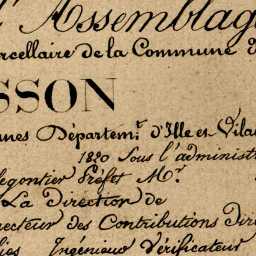 l'Assemblag
rcellaire de la Commune d
SSON
nes Départem.t d'Ille et Vila
1820 Sous l'administr
legontier Préfet Mr.
La Direction de
recteur des Contributions Dire
Ingénieur Vérificateur